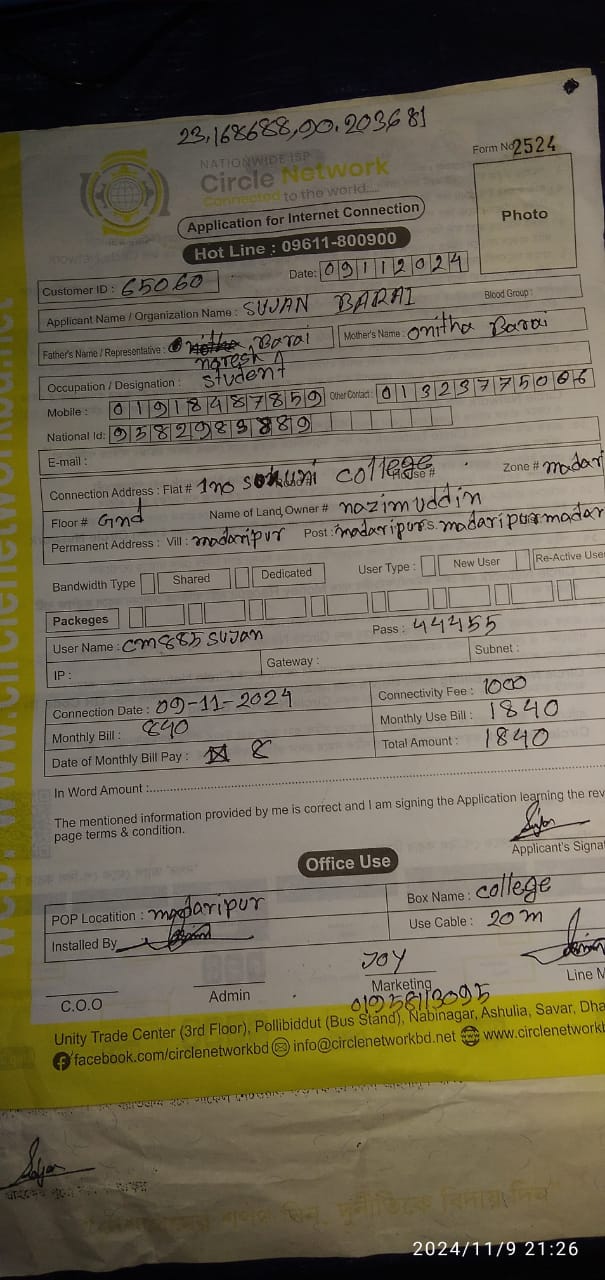 23.168688,90.203681
NATIONWIDE ISP
Circle Network
Connected to the world....
Form No 2524
Photo
Application for Internet Connection
Hot Line : 09611-800900
Customer ID : 65060
Date: 09112024
Applicant Name / Organization Name : SUJAN BARAI Blood Group :
Father's Name / Representative : Barai
naresh
Mother's Name : onitha Barai
Occupation / Designation : student
Mobile : 01918487859 Other Contact : 01323775006
National Id: 9582983889
E-mail :
Connection Address : Flat # 1no college Zone # madari
Floor # Gnd Name of Land Owner # nazim uddin
Permanent Address : Vill : madaripur Post : madaripur madaripur madar
Bandwidth Type Shared Dedicated User Type : New User Re-Active User
Packeges
User Name : cm885 SUJAN Pass : 44455
IP : Gateway : Subnet :
Connection Date : 09-11-2024 Connectivity Fee : 1000
Monthly Bill : 840 Monthly Use Bill : 1840
Date of Monthly Bill Pay : 8 Total Amount : 1840
In Word Amount :
The mentioned information provided by me is correct and I am signing the Application learning the rev
page terms & condition.
Applicant's Signat
Office Use
POP Locatition : madaripur Box Name : college
Installed By Use Cable : 20 m
JOY
C.O.O Admin Marketing Line M
01958113095
Unity Trade Center (3rd Floor), Pollibiddut (Bus Stand), Nabinagar, Ashulia, Savar, Dha
facebook.com/circlenetworkbd info@circlenetworkbd.net www.circlenetworkb
2024/11/9 21:26